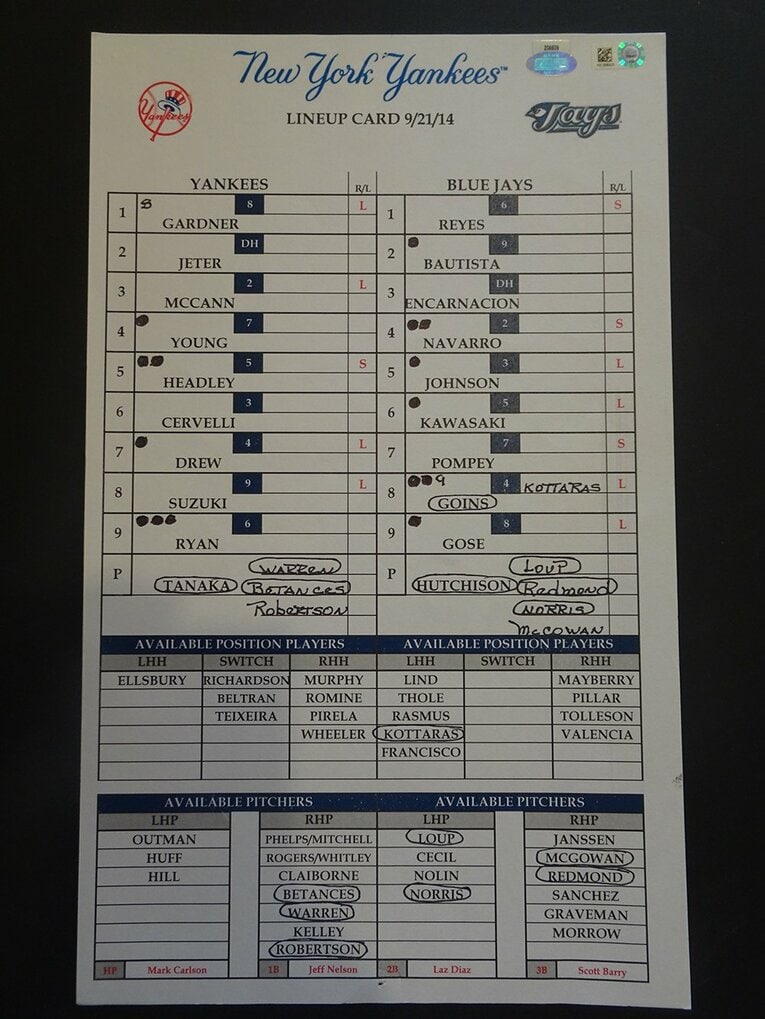 New York Yankees™
Yankees
LINEUP CARD 9/21/14
Jays
YANKEES R/L BLUE JAYS R/L
1 S 8 L 1 6 S
GARDNER REYES
2 DH 2 9
JETER BAUTISTA
3 2 L 3 DH
MCCANN ENCARNACION
4 7 4 2 S
YOUNG NAVARRO
5 5 S 5 3 L
HEADLEY JOHNSON
6 3 6 5 L
CERVELLI KAWASAKI
7 4 L 7 7 S
DREW POMPEY
8 9 L 8 9 4 KOTTARAS L
SUZUKI GOINS
9 6 9 8 L
RYAN GOSE
P WARREN P LOUP
TANAKA BETANCES HUTCHISON Redmond
Robertson NORRIS
McGOWAN
AVAILABLE POSITION PLAYERS AVAILABLE POSITION PLAYERS
LHH SWITCH RHH LHH SWITCH RHH
ELLSBURY RICHARDSON MURPHY LIND MAYBERRY
BELTRAN ROMINE THOLE PILLAR
TEIXEIRA PIRELA RASMUS TOLLESON
WHEELER KOTTARAS VALENCIA
FRANCISCO
AVAILABLE PITCHERS AVAILABLE PITCHERS
LHP RHP LHP RHP
OUTMAN PHELPS/MITCHELL LOUP JANSSEN
HUFF ROGERS/WHITLEY CECIL MCGOWAN
HILL CLAIBORNE NOLIN REDMOND
BETANCES NORRIS SANCHEZ
WARREN GRAVEMAN
KELLEY MORROW
ROBERTSON
HP Mark Carlson 1B Jeff Nelson 2B Laz Diaz 3B Scott Barry